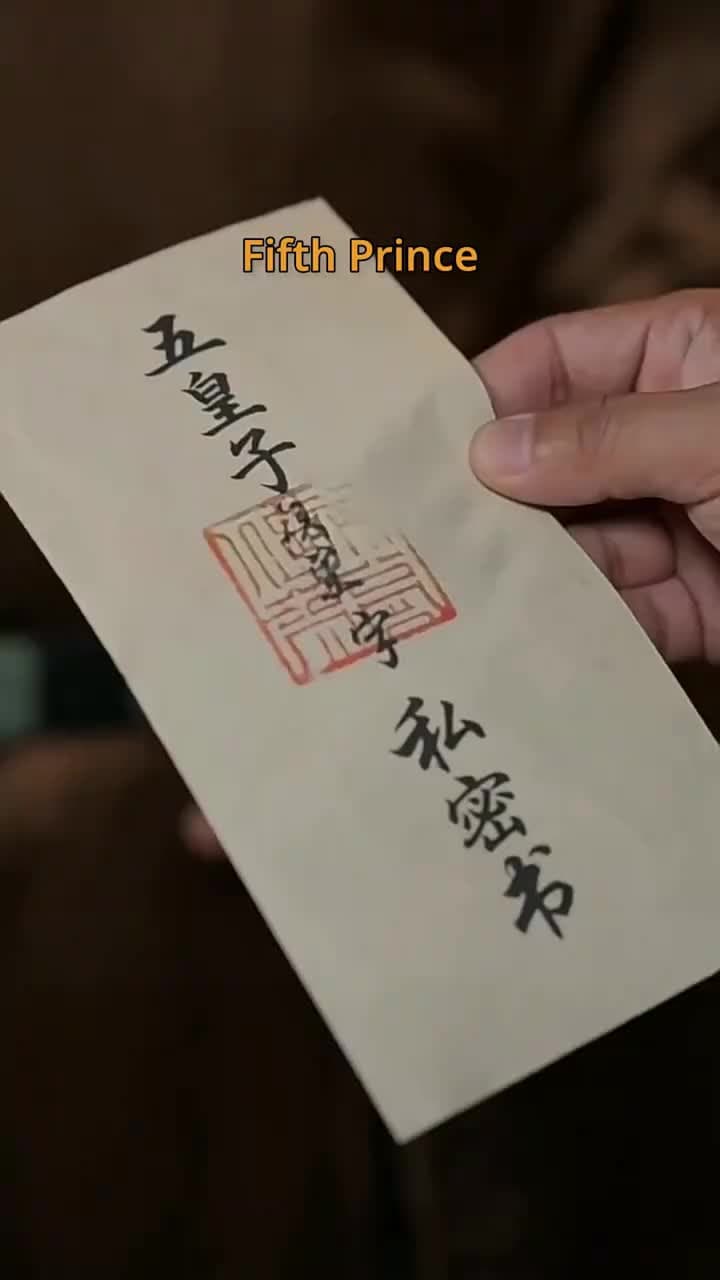 Fifth Prince
五皇子
字
私密书